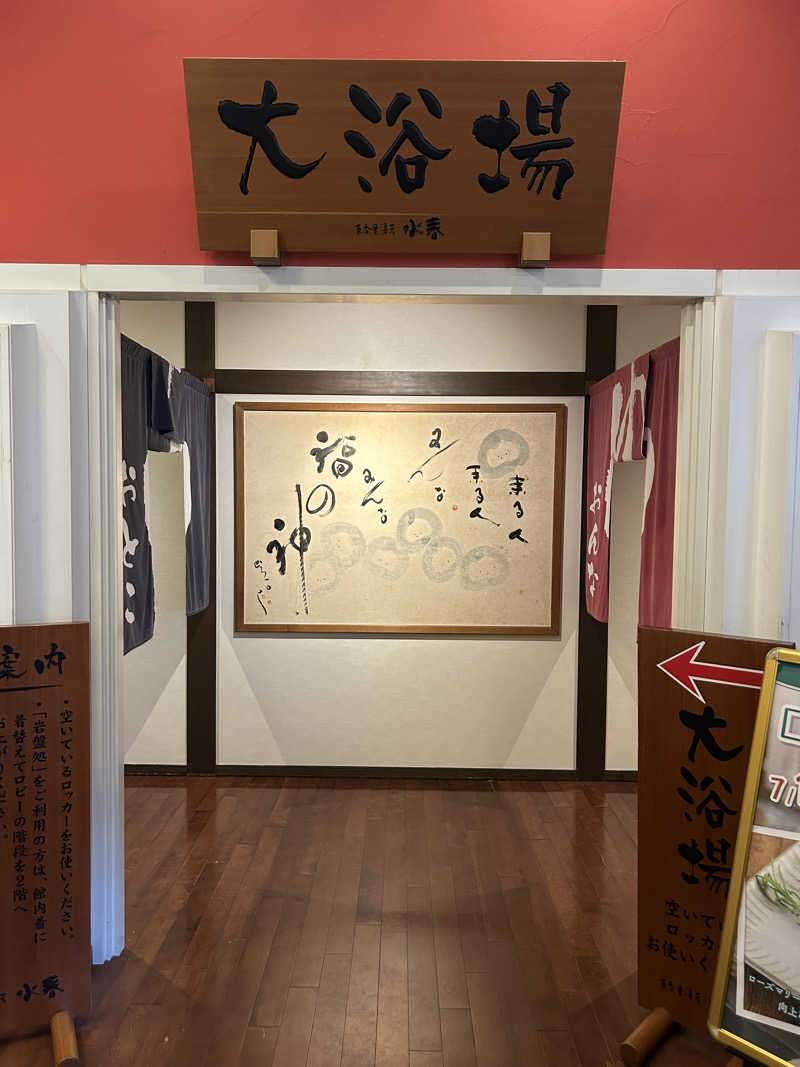 大浴場
水春
おとこ
来る人
来る人
みんな
みんな
福の神
おんな
案内
・空いているロッカーをお使いください。
・「岩盤処」をご利用の方は、館内着に
着替えてロビーの階段を2階へ
お上がりください。
水春
大浴場
空いてい
ロッカ
お使いく
ローズマリー
向上